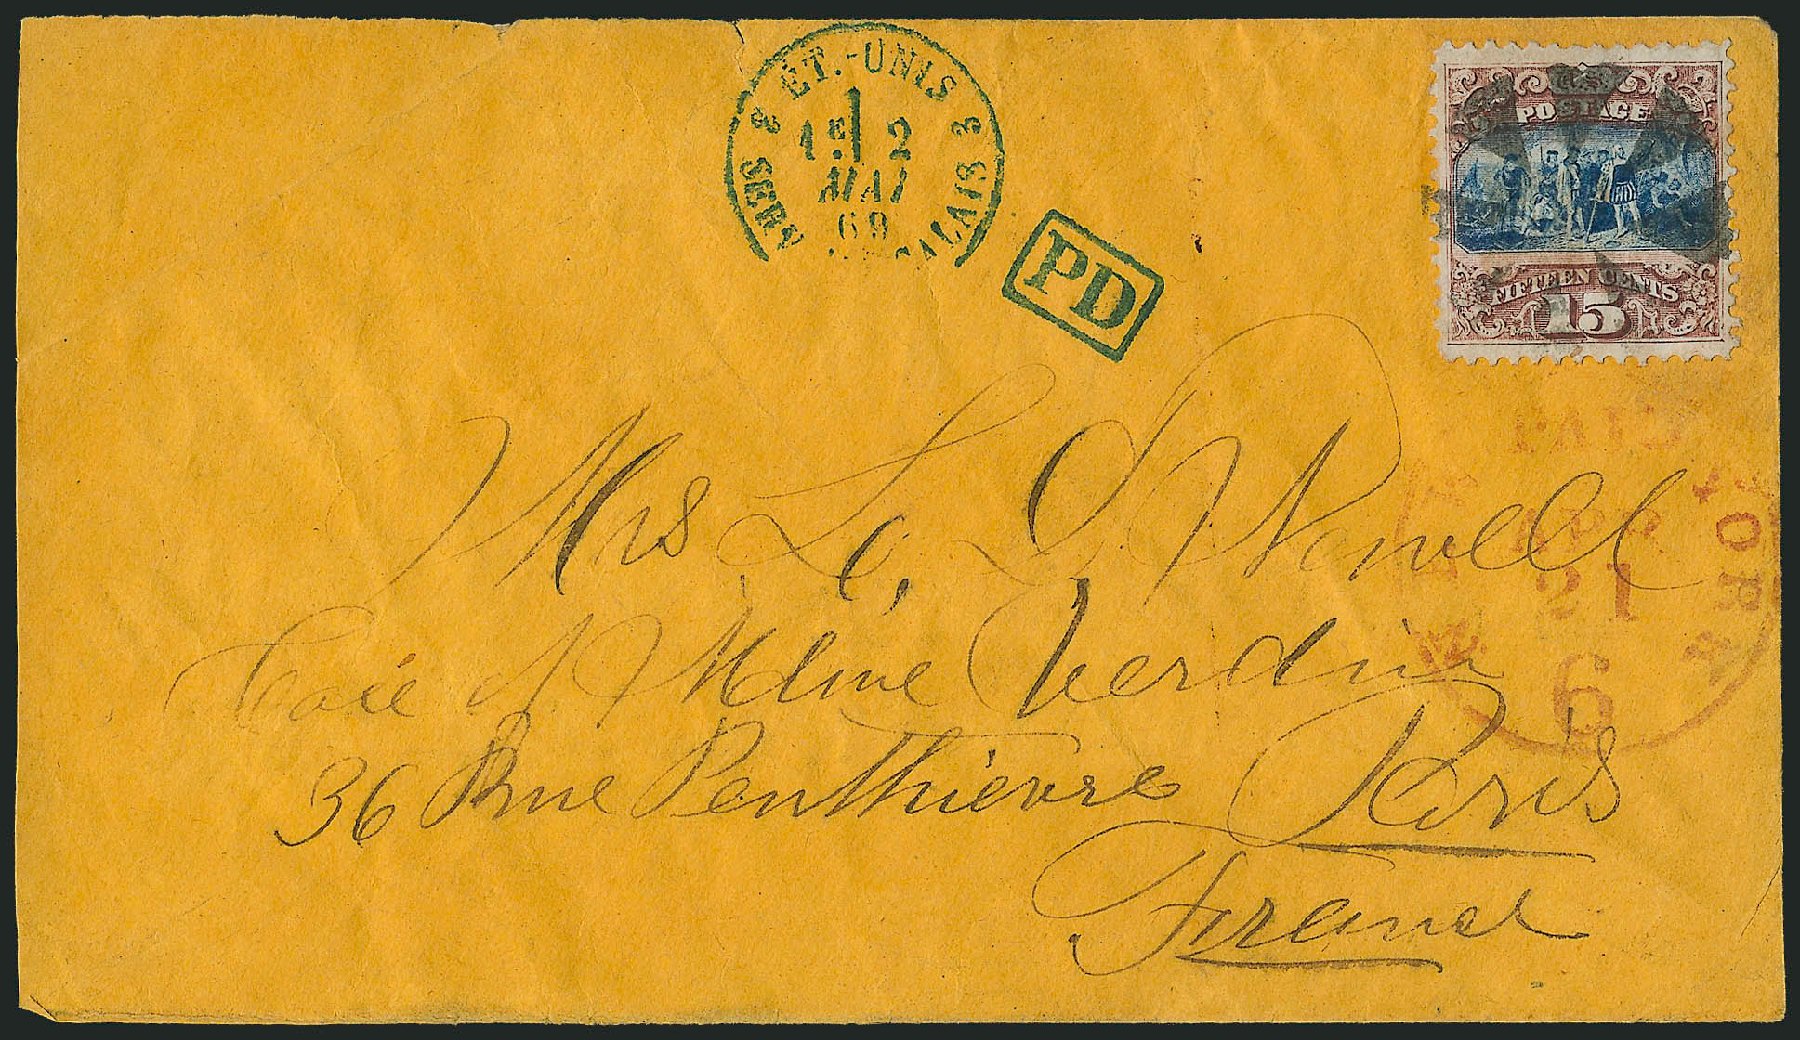 3 ÉT.-UNIS 3
1E 2
MAI
69
SERV. CALAIS
PD
U.S.
POSTAGE
FIFTEEN CENTS
15
Mrs L. D. Norvell
Care of Mdme Verdin
36 Rue Penthievre Paris
France
N YORK
APR
21
6